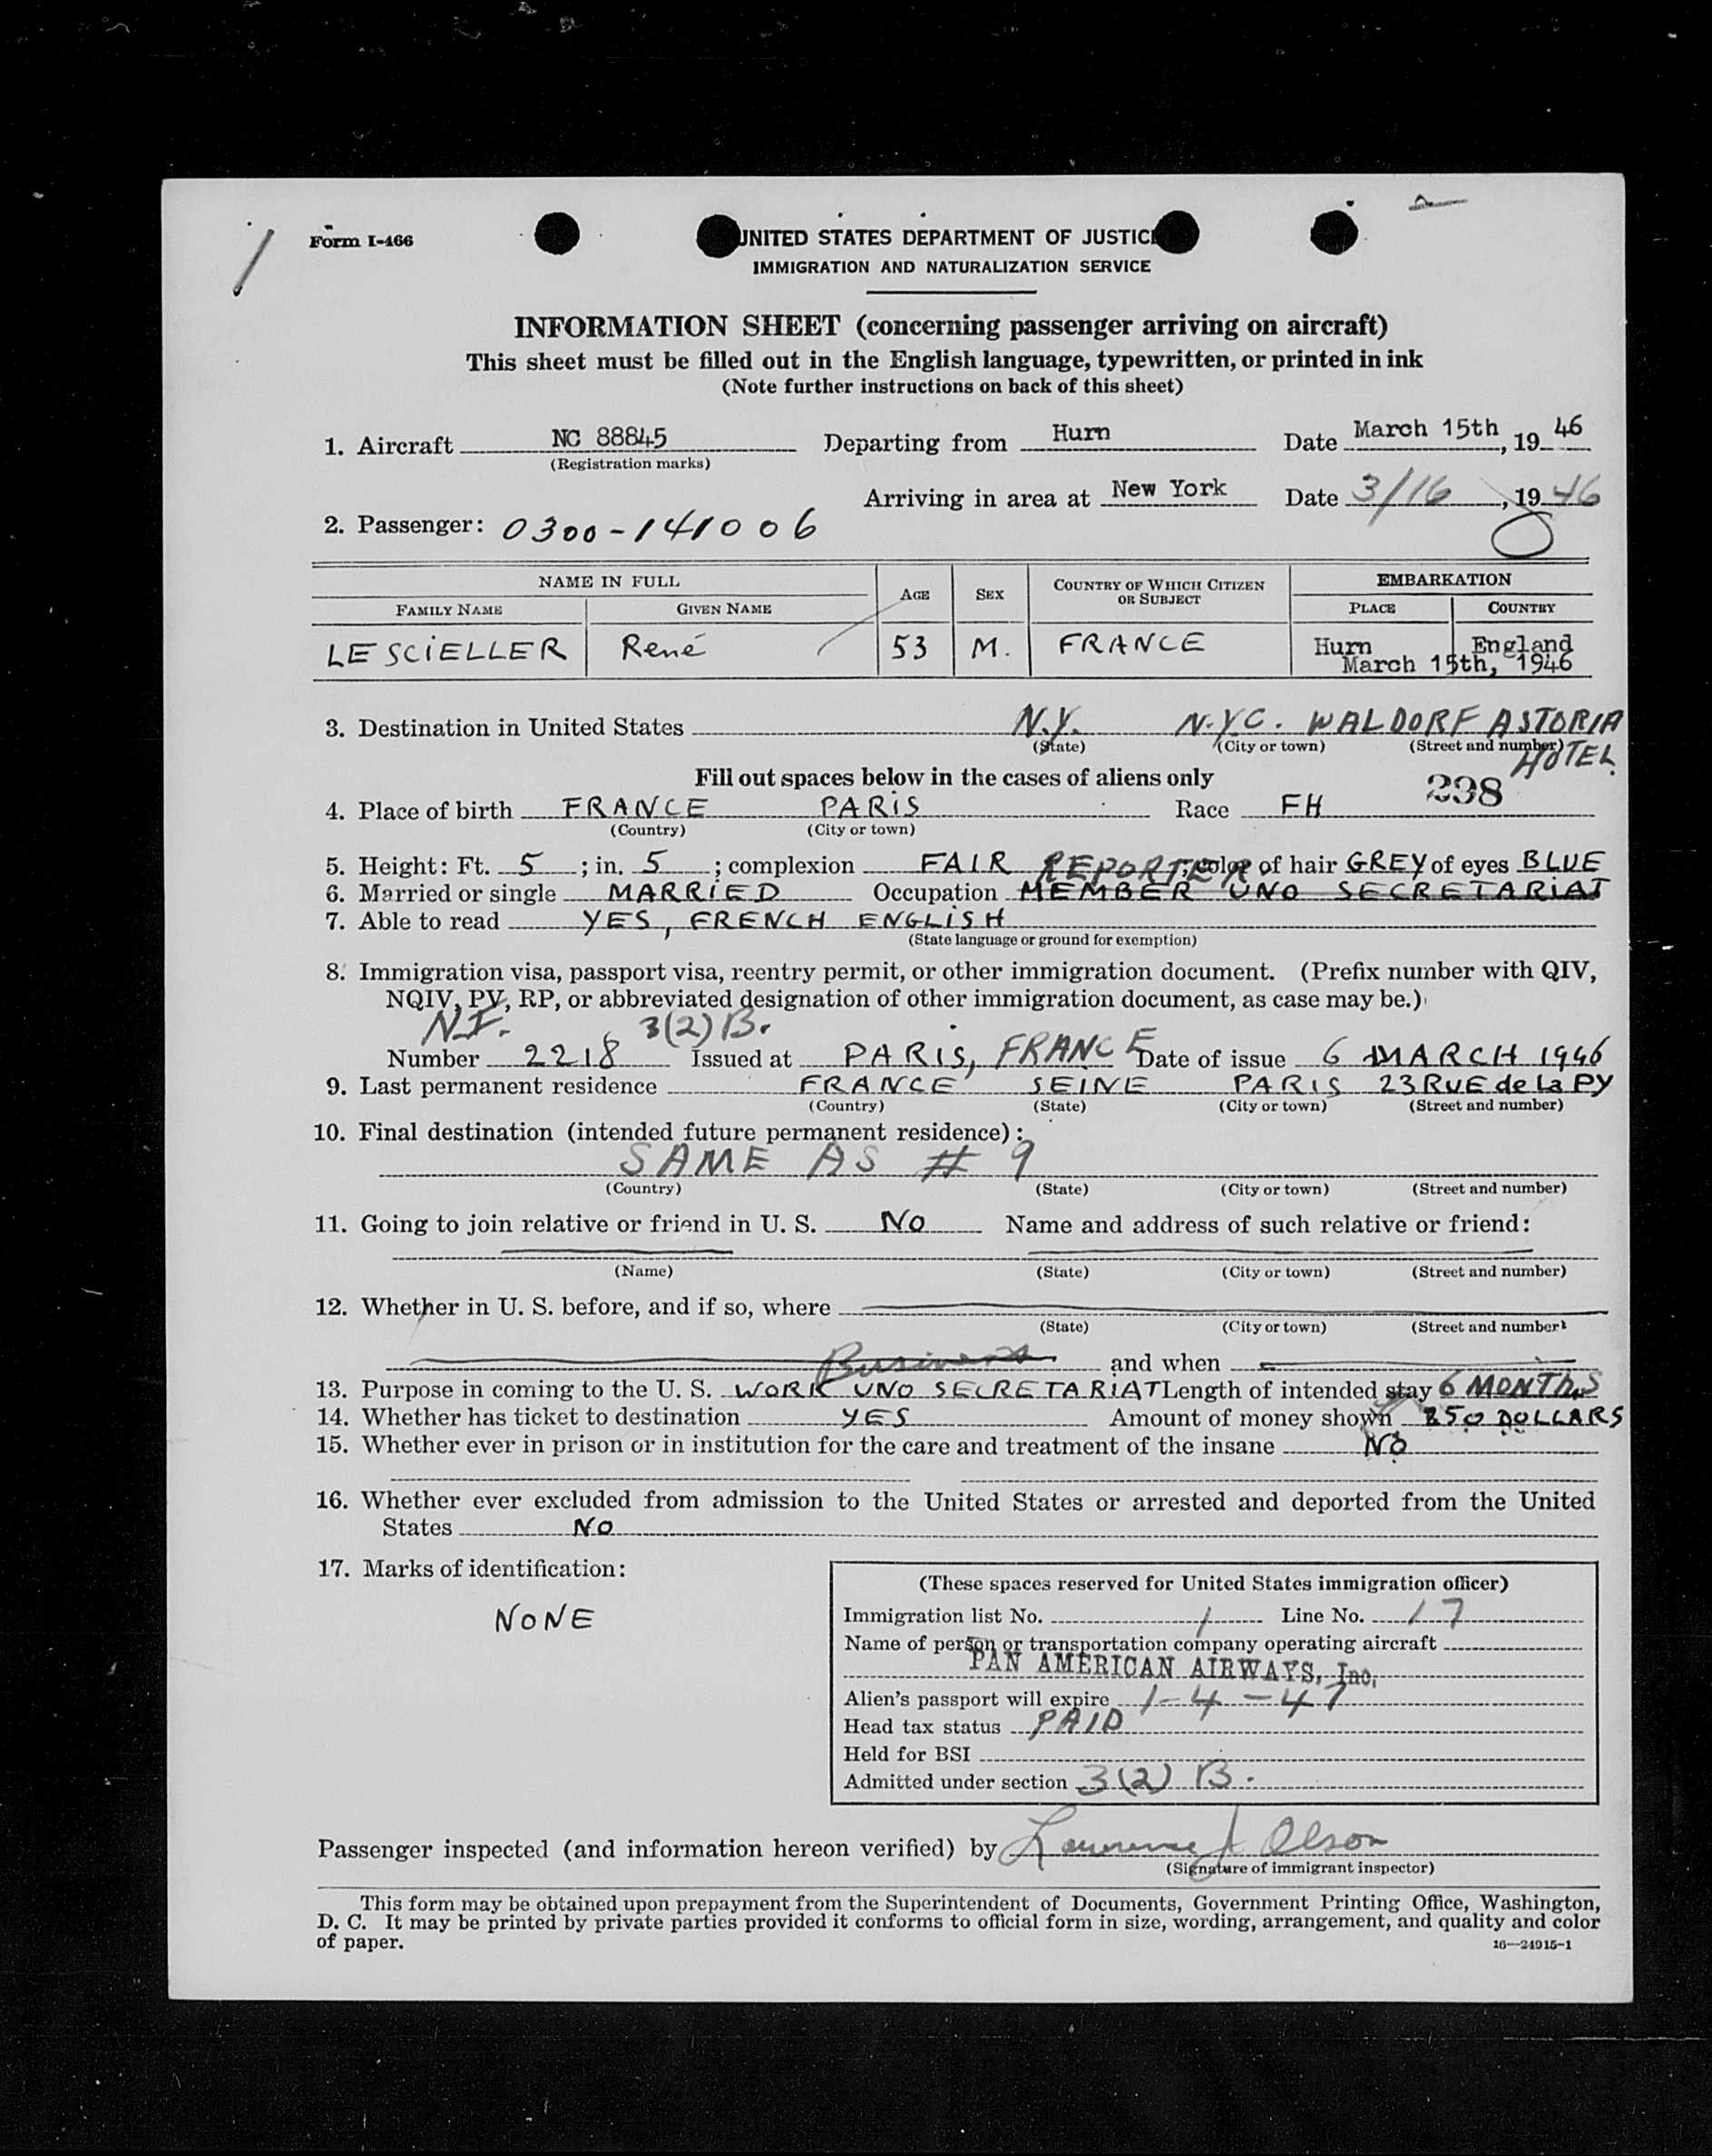 Form I-466
UNITED STATES DEPARTMENT OF JUSTICE
IMMIGRATION AND NATURALIZATION SERVICE
INFORMATION SHEET (concerning passenger arriving on aircraft)
This sheet must be filled out in the English language, typewritten, or printed in ink
(Note further instructions on back of this sheet)
1. Aircraft NC 88845 Departing from Hurn Date March 15th, 1946
(Registration marks)
Arriving in area at New York Date 3/16, 1946
2. Passenger: 0300-141006
NAME IN FULL AGE SEX COUNTRY OF WHICH CITIZEN OR SUBJECT EMBARKATION
FAMILY NAME GIVEN NAME PLACE COUNTRY
LE SCIELLER René 53 M. FRANCE Hurn England
March 15th, 1946
3. Destination in United States N.Y. N.Y.C. WALDORF ASTORIA
(State) (City or town) (Street and number) HOTEL
Fill out spaces below in the cases of aliens only
298
4. Place of birth FRANCE PARIS Race FH
(Country) (City or town)
5. Height: Ft. 5; in. 5; complexion FAIR; color of hair GREY of eyes BLUE
REPORTER
6. Married or single MARRIED Occupation MEMBER UNO SECRETARIAT
7. Able to read YES, FRENCH ENGLISH
(State language or ground for exemption)
8. Immigration visa, passport visa, reentry permit, or other immigration document. (Prefix number with QIV,
NQIV, PV, RP, or abbreviated designation of other immigration document, as case may be.)
N.I. 3(2)B.
Number 2218 Issued at PARIS, FRANCE Date of issue 6 MARCH 1946
9. Last permanent residence FRANCE SEINE PARIS 23 RUE de La PY
(Country) (State) (City or town) (Street and number)
10. Final destination (intended future permanent residence):
SAME AS # 9
(Country) (State) (City or town) (Street and number)
11. Going to join relative or friend in U. S. NO Name and address of such relative or friend:
(Name) (State) (City or town) (Street and number)
12. Whether in U. S. before, and if so, where
(State) (City or town) (Street and number)
Business and when
13. Purpose in coming to the U. S. WORK UNO SECRETARIAT Length of intended stay 6 MONTHS
14. Whether has ticket to destination YES Amount of money shown 50 DOLLARS
15. Whether ever in prison or in institution for the care and treatment of the insane NO
16. Whether ever excluded from admission to the United States or arrested and deported from the United
States NO
17. Marks of identification:
NONE
(These spaces reserved for United States immigration officer)
Immigration list No. 1 Line No. 17
Name of person or transportation company operating aircraft
PAN AMERICAN AIRWAYS, Inc.
Alien's passport will expire 1-4-47
Head tax status PAID
Held for BSI
Admitted under section 3(2) B.
Passenger inspected (and information hereon verified) by Lawrence J Olson
(Signature of immigrant inspector)
This form may be obtained upon prepayment from the Superintendent of Documents, Government Printing Office, Washington,
D. C. It may be printed by private parties provided it conforms to official form in size, wording, arrangement, and quality and color
of paper.
16—24915-1